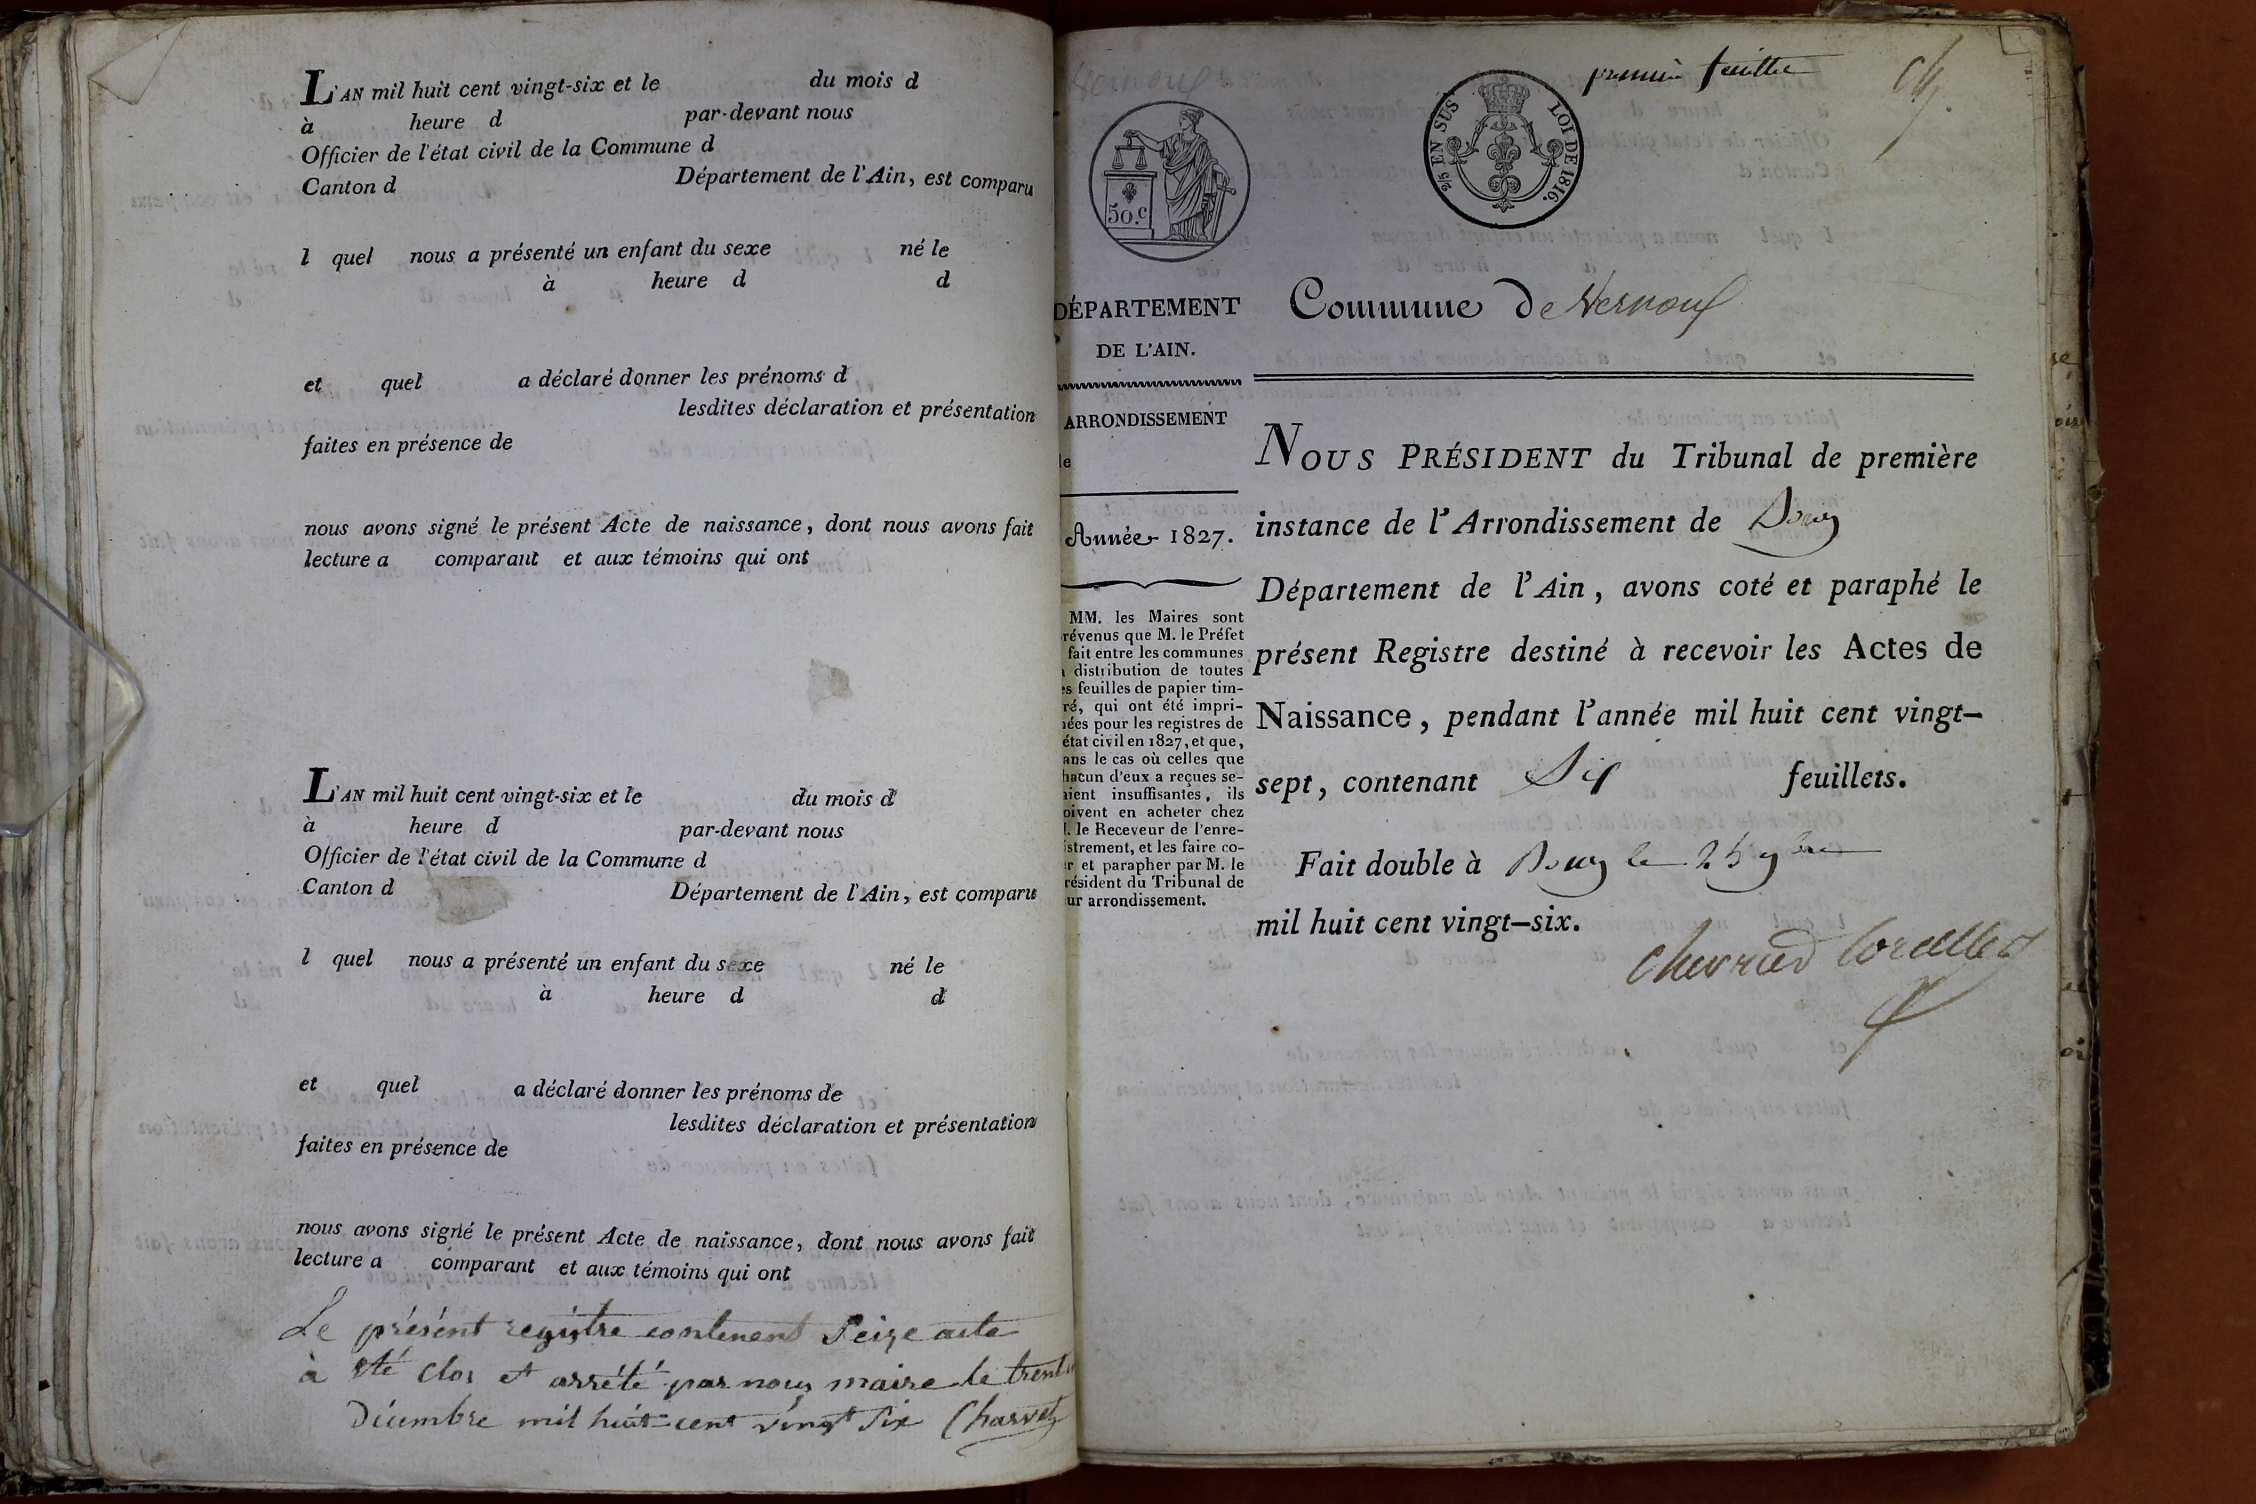 L'AN mil huit cent vingt-six et le du mois d
à heure d par-devant nous
Officier de l'état civil de la Commune d
Canton d Département de l'Ain, est comparu
l quel nous a présenté un enfant du sexe né le
à heure d d
et quel a déclaré donner les prénoms d
lesdites déclaration et présentation
faites en présence de
nous avons signé le présent Acte de naissance, dont nous avons fait
lecture a comparant et aux témoins qui ont
L'AN mil huit cent vingt-six et le du mois d
à heure d par-devant nous
Officier de l'état civil de la Commune d
Canton d Département de l'Ain, est comparu
l quel nous a présenté un enfant du sexe né le
à heure d d
et quel a déclaré donner les prénoms de
lesdites déclaration et présentation
faites en présence de
nous avons signé le présent Acte de naissance, dont nous avons fait
lecture a comparant et aux témoins qui ont
Le présent registre contenent Seize acte
à été clos et arrété par nous maire le trente
Décembre mil huit cent vingt Six Charvet
premier feuillet
50.c
2/5 EN SUS LOI DE 1816.
DÉPARTEMENT
DE L'AIN.
ARRONDISSEMENT
de
Année 1827.
MM. les Maires sont
révenus que M. le Préfet
fait entre les communes
distribution de toutes
es feuilles de papier tim-
ré, qui ont été impri-
ées pour les registres de
état civil en 1827, et que,
ans le cas où celles que
hacun d'eux a reçues se-
aient insuffisantes, ils
oivent en acheter chez
. le Receveur de l'enre-
istrement, et les faire co-
er et parapher par M. le
résident du Tribunal de
ur arrondissement.
Commune de Vernoux
NOUS PRÉSIDENT du Tribunal de première
instance de l'Arrondissement de Bourg
Département de l'Ain, avons coté et paraphé le
présent Registre destiné à recevoir les Actes de
Naissance, pendant l'année mil huit cent vingt-
sept, contenant Six feuillets.
Fait double à Bourg le 25 9bre
mil huit cent vingt-six.
Chevrier Corcelles